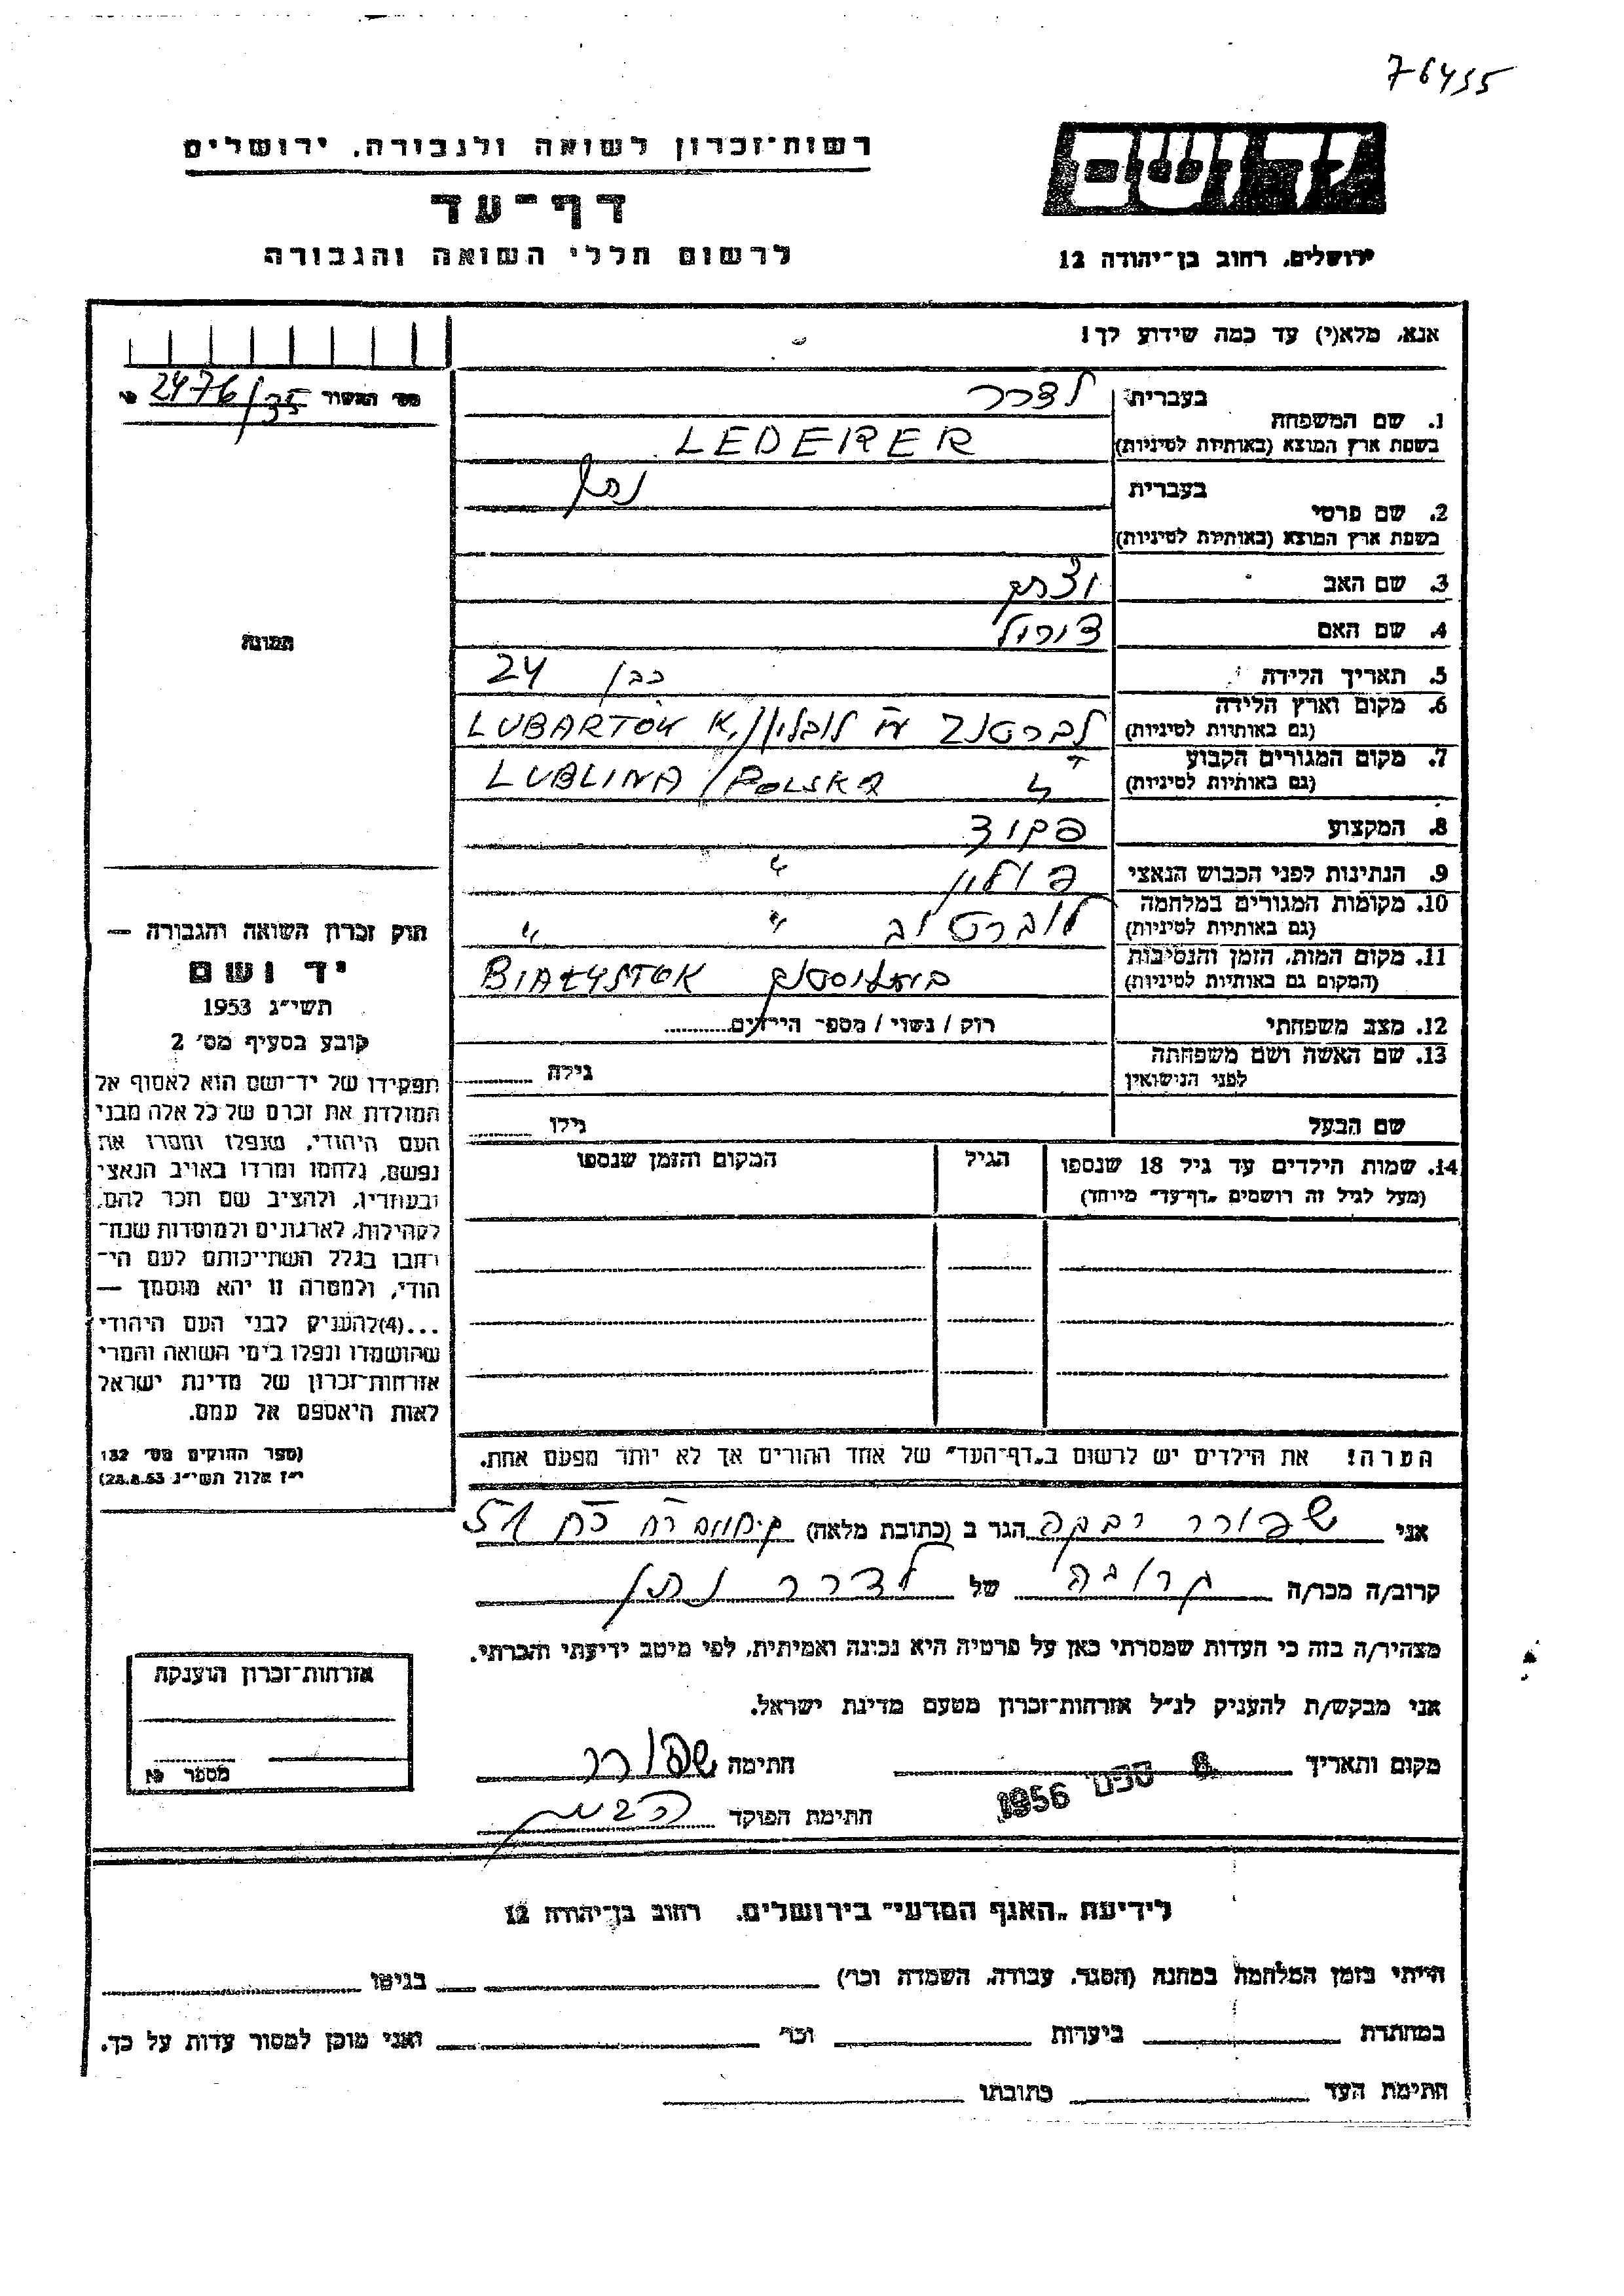 76455
רשות־זכרון לשואה ולגבורה, ירושלים
דף־עד
לרשום חללי השואה והגבורה
יד ושם
ירושלים, רחוב בן־יהודה 12
אנא, מלא(י) עד כמה שידוע לך!
מס' האשור 2476/35
1. שם המשפחה בעברית: לדרר
בשפת ארץ המוצא (באותיות לטיניות) LEDERER
2. שם פרטי בעברית נתן
בשפת ארץ המוצא (באותיות לטיניות)
3. שם האב
4. שם האם
5. תאריך הלידה כבן 24
6. מקום וארץ הלידה
(גם באותיות לטיניות) לוברטוב ע"י לובלין LUBARTÓW K/
7. מקום המגורים הקבוע
(גם באותיות לטיניות) LUBLINA / POLSKA
8. המקצוע פקיד
9. הנתינות לפני הכבוש הנאצי פולין "
10. מקומות המגורים במלחמה
(גם באותיות לטיניות) לוברטוב " "
11. מקום המות, הזמן והנסיבות
(המקום גם באותיות לטיניות) ביאליסטוק BIAŁYSTOK
12. מצב משפחתי רוק / נשוי / מספר הילדים
13. שם האשה ושם משפחתה
לפני הנישואין גילה
שם הבעל גילו
14. שמות הילדים עד גיל 18 שנספו הגיל המקום והזמן שנספו
(מעל לגיל זה רושמים „דף־עד" מיוחד)
הערה! את הילדים יש לרשום ב„דף־העד" של אחד ההורים אך לא יותר מפעם אחת.
תמונה
חוק זכרון השואה והגבורה —
יד ושם
תשי"ג 1953
קובע בסעיף מס' 2
תפקידו של יד־ושם הוא לאסוף אל
המולדת את זכרם של כל אלה מבני
העם היהודי, שנפלו ומסרו את
נפשם, נלחמו ומרדו באויב הנאצי
ובעוזריו, ולהציב שם וזכר להם,
לקהילות, לארגונים ולמוסדות שנח־
רבו בגלל השתייכותם לעם הי־
הודי, ולמטרה זו יהא מוסמך —
...(4)להעניק לבני העם היהודי
שהושמדו ונפלו בימי השואה והמרי
אזרחות־זכרון של מדינת ישראל
לאות היאספם אל עמם.
(ספר החוקים מס' 132
י"ז אלול תשי"ג 28.8.53)
אני שפורר רבקה הגר ב (כתובת מלאה) 51
קרוב/ה מכר/ה קרובה של לדרר נתן
מצהיר/ה בזה כי העדות שמסרתי כאן על פרטיה היא נכונה ואמיתית, לפי מיטב ידיעתי והכרתי.
אני מבקש/ת להעניק לנ"ל אזרחות־זכרון מטעם מדינת ישראל.
מקום ותאריך 8 ספט 1956 חתימה שפורר
חתימת הפוקד
אזרחות־זכרון הוענקה
מספר
לידיעת „האגף המדעי" בירושלים, רחוב בן־יהודה 12
הייתי בזמן המלחמה במחנה (הסגר, עבודה, השמדה וכו') בגיטו
במחתרת ביערות וכו' ואני מוכן למסור עדות על כך.
חתימת העד כתובתו